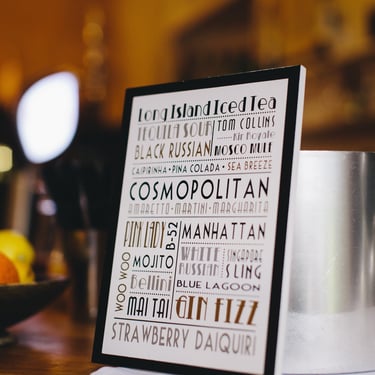 Long Island Iced Tea
TEQUILA SOUR
TOM COLLINS
Kir Royale
BLACK RUSSIAN
MOSCO MULE
CAIPIRINHA • PINA COLADA • SEA BREEZE
COSMOPOLITAN
AMARETTO - MARTINI - MARGHARITA
PINK LADY
B-52
MANHATTAN
WOO WOO
MOJITO
WHITE
RUSSIAN
SINGAPORE
SLING
Bellini
BLUE LAGOON
MAI TAI
GIN FIZZ
STRAWBERRY DAIQUIRI